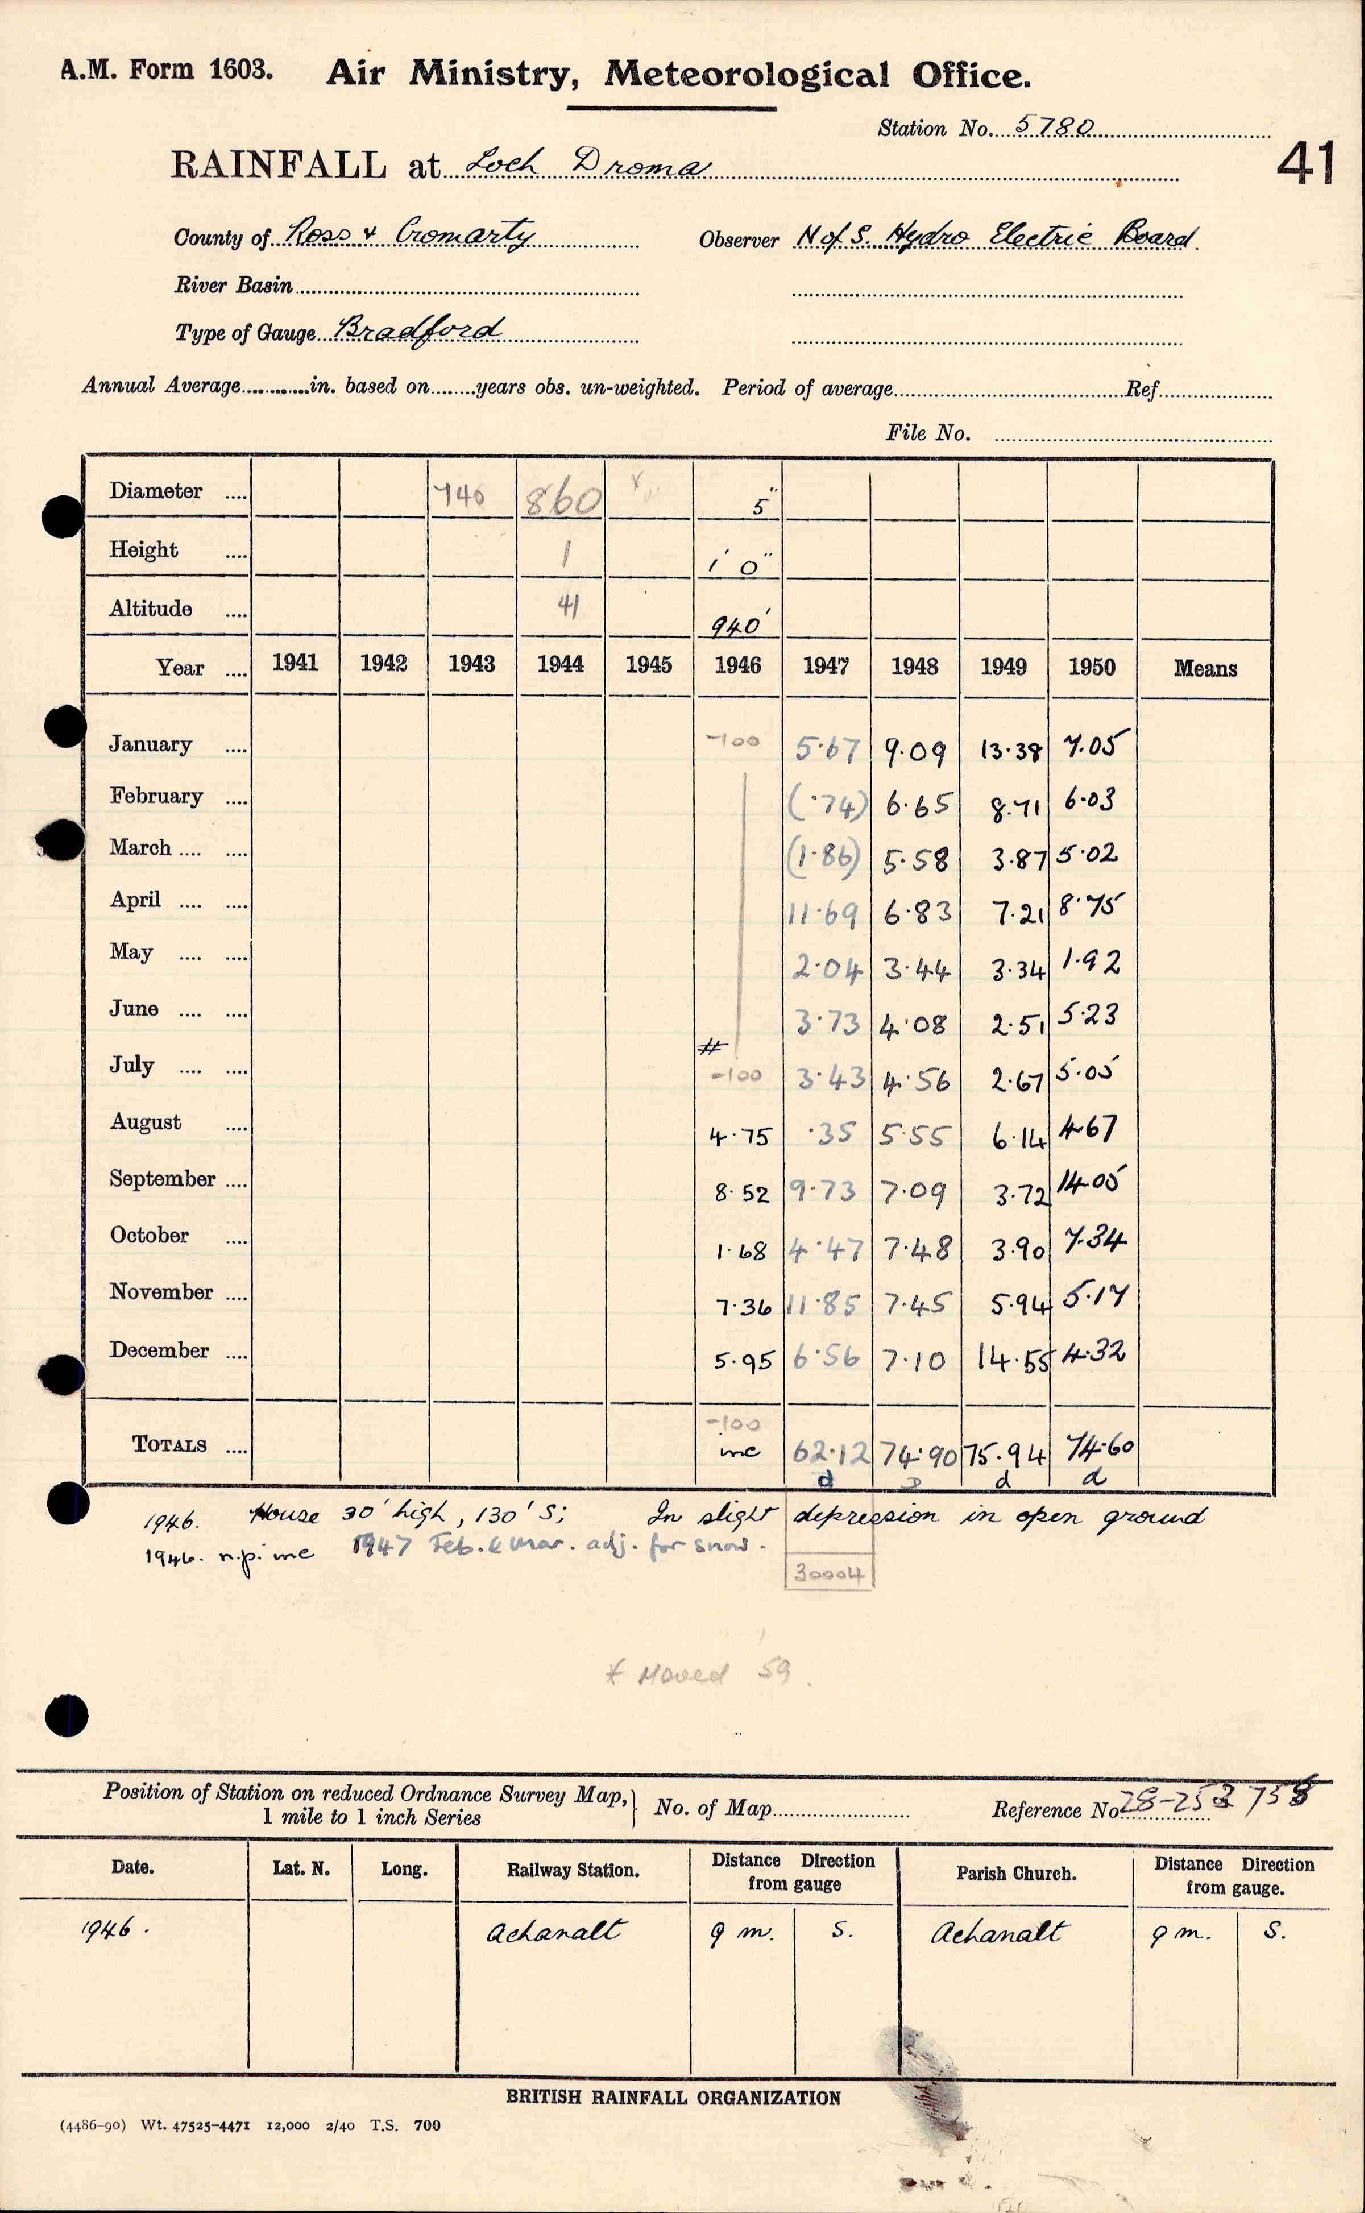 A.M. Form 1603. Air Ministry, Meteorological Office.
Station No. 5780
41
RAINFALL at Loch Droma
County of Ross & Cromarty Observer N of S. Hydro Electric Board.
River Basin
Type of Gauge Bradford
Annual Average in. based on years obs. un-weighted. Period of average Ref
File No.
Diameter 740 860 5"
Height 1 1' 0"
Altitude 41 940'
Year 1941 1942 1943 1944 1945 1946 1947 1948 1949 1950 Means
January -100 5.67 9.09 13.38 7.05
February (.74) 6.65 8.71 6.03
March (1.86) 5.58 3.87 5.02
April 11.69 6.83 7.21 8.75
May 2.04 3.44 3.34 1.92
June 3.73 4.08 2.51 5.23
#
July -100 3.43 4.56 2.67 5.05
August 4.75 .35 5.55 6.14 4.67
September 8.52 9.73 7.09 3.72 14.05
October 1.68 4.47 7.48 3.90 7.34
November 7.36 11.85 7.45 5.94 5.17
December 5.95 6.56 7.10 14.55 4.32
-100
TOTALS inc 62.12 74.90 75.94 74.60
d d d
1946. House 30' high, 130' S; In slight depression in open ground
1946. n.p. inc 1947 Feb. & Mar. adj. for snow.
30004
* Moved '59.
Position of Station on reduced Ordnance Survey Map, No. of Map Reference No
1 mile to 1 inch Series
Date. Lat. N. Long. Railway Station. Distance Direction from gauge Parish Church. Distance Direction from gauge.
1946. Achanalt 9 m. S. Achanalt 9 m. S.
BRITISH RAINFALL ORGANIZATION
(4486-90) Wt. 47525-4471 12,000 2/40 T.S. 700